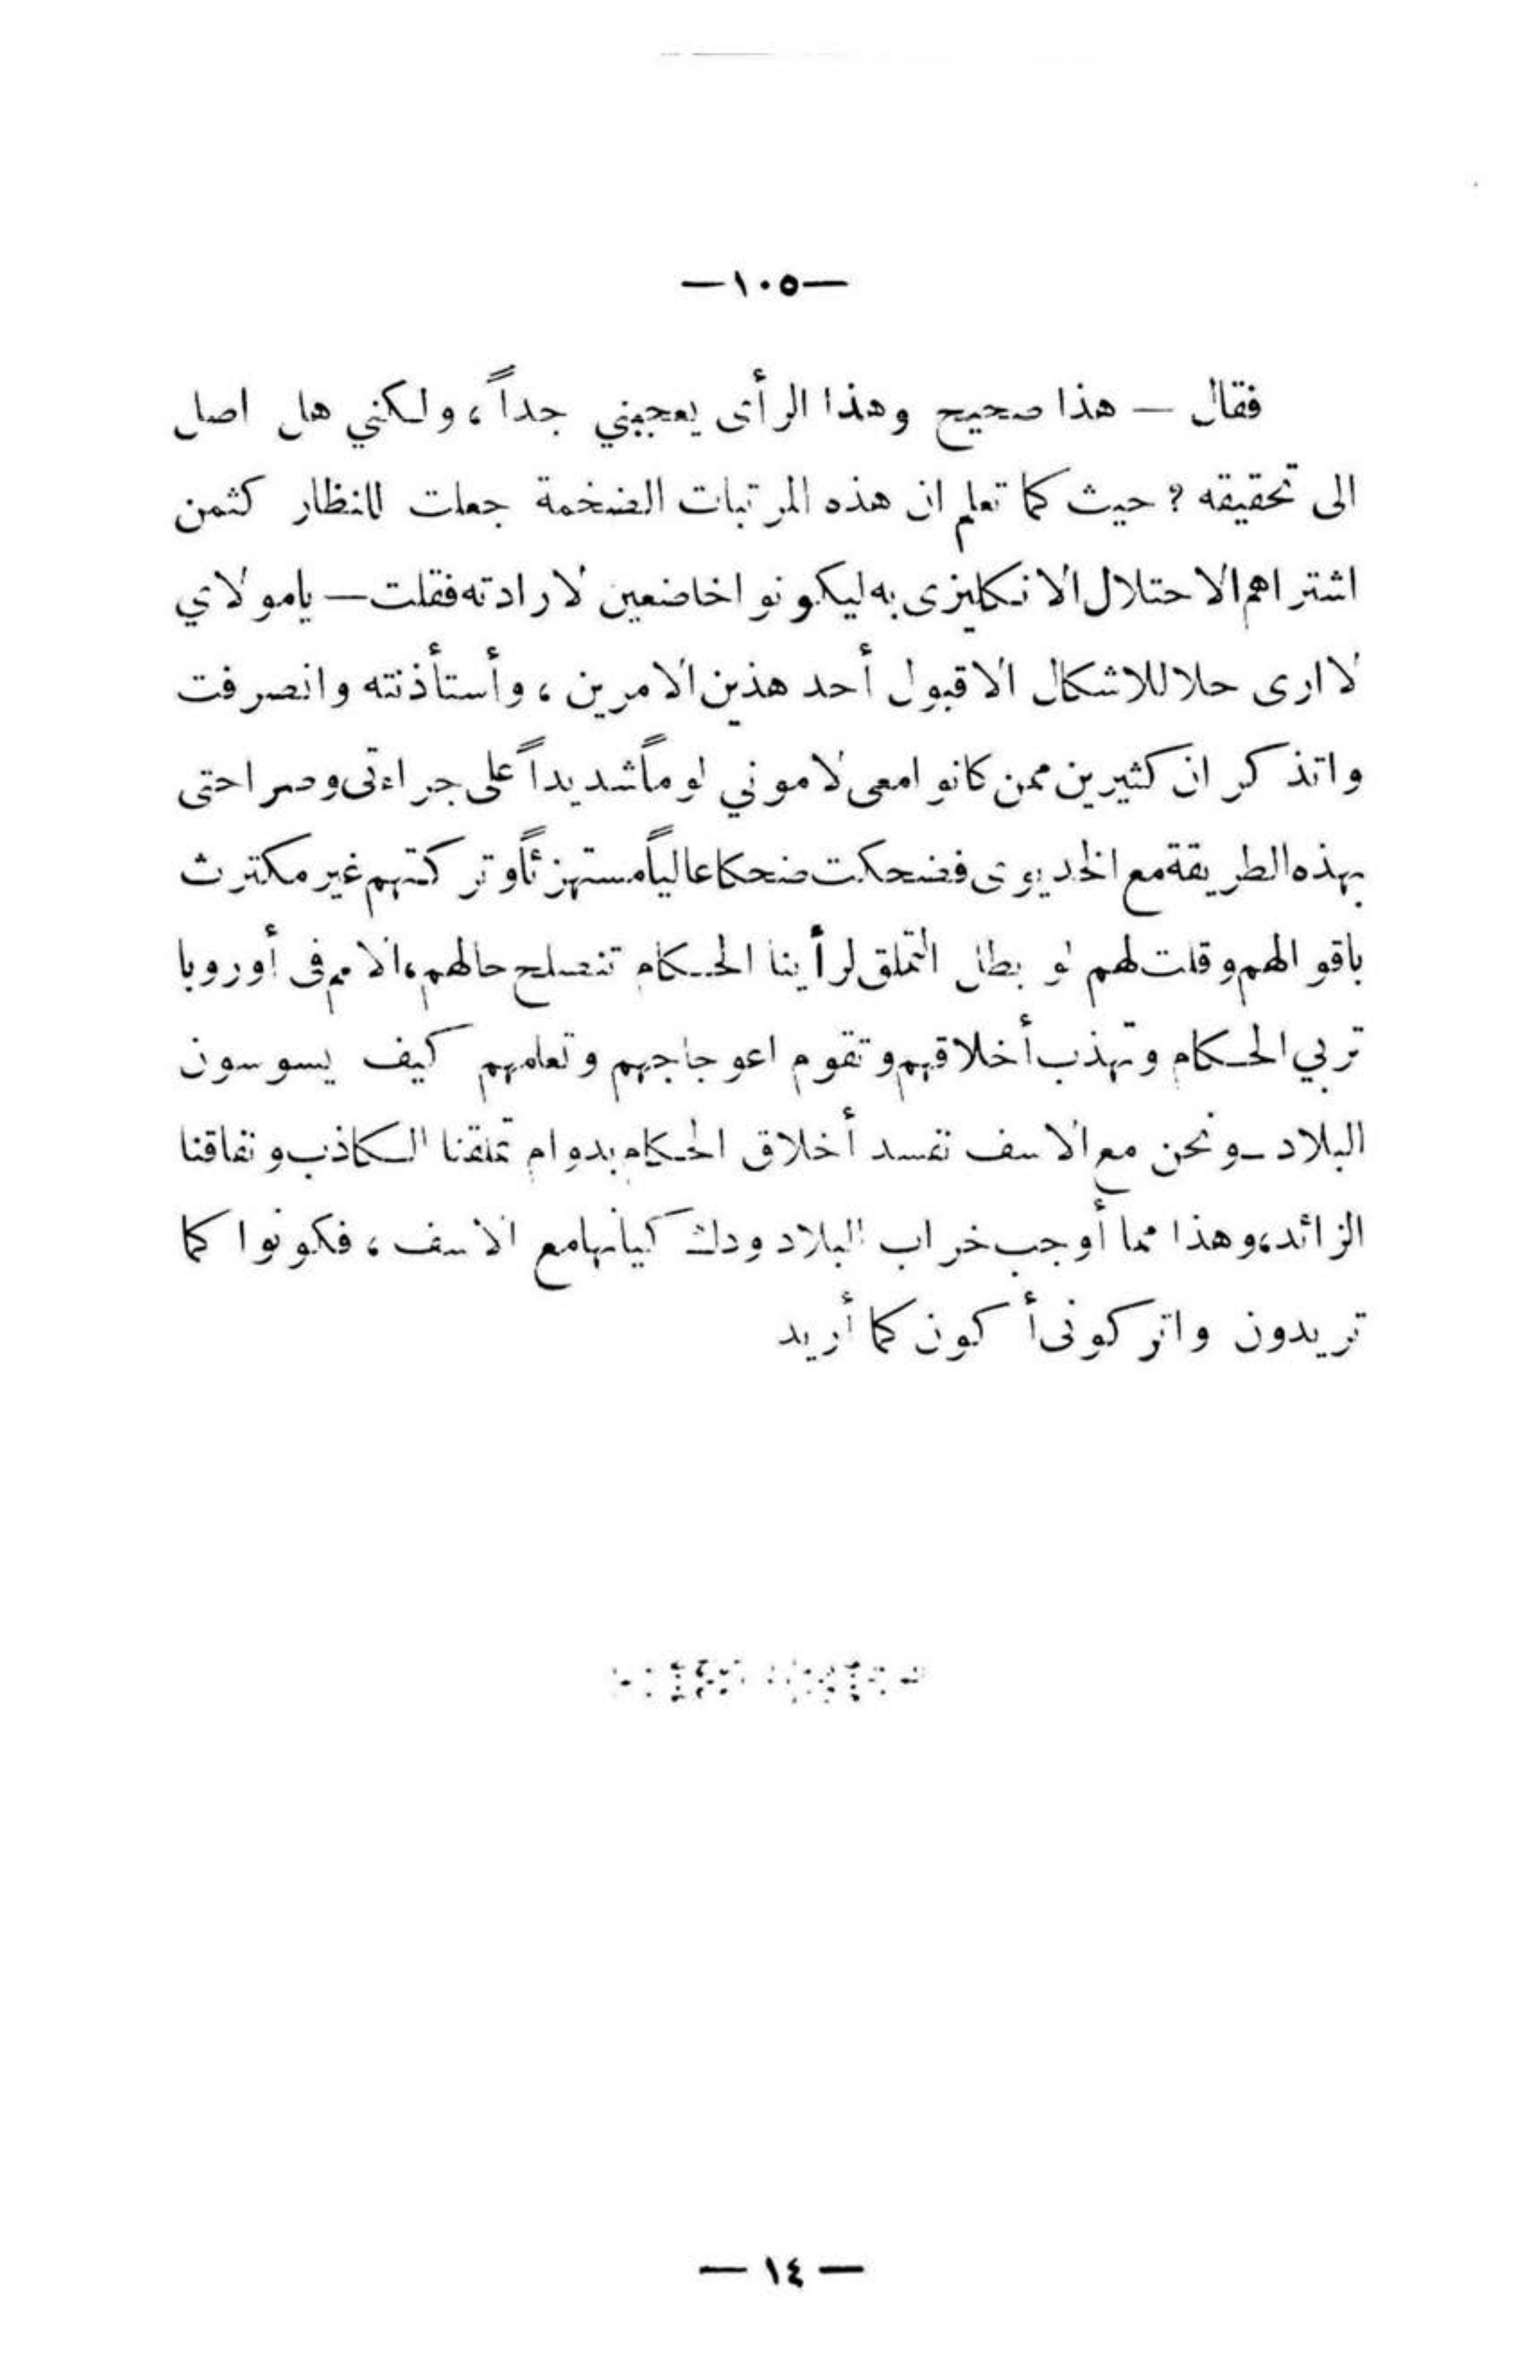 —١٠٥—
فقال — هذا صحيح وهذا الرأى يعجبني جداً ، ولكني هل اصل
الى تحقيقه ؟ حيث كما تعلم ان هذه المرتبات الضخمة جعلت للنظار كثمن
اشتراهم الاحتلال الانكليزى به ليكونوا خاضعين لارادته فقلت — يامولاي
لا ارى حلا للاشكال الا قبول أحد هذين الامرين ، وأستأذنته وانصرفت
واتذكر ان كثيرين ممن كانوا معى لاموني لوماً شديداً على جراءتى وصراحتى
بهذه الطريقة مع الخديوى فضحكت ضحكا عالياً مستهزئاً وتركتهم غير مكترث
باقوالهم وقلت لهم لو بطل التملق لرأينا الحكام تنصلح حالهم ، الامم فى أوروبا
تربي الحكام وتهذب أخلاقهم وتقوم اعوجاجهم وتعلمهم كيف يسوسون
البلاد — ونحن مع الاسف نفسد أخلاق الحكام بدوام تملقنا الكاذب ونفاقنا
الزائد ، وهذا مما أوجب خراب البلاد ودك كيانها مع الاسف ، فكونوا كما
تريدون واتركونى أكون كما أريد
— ١٤ —